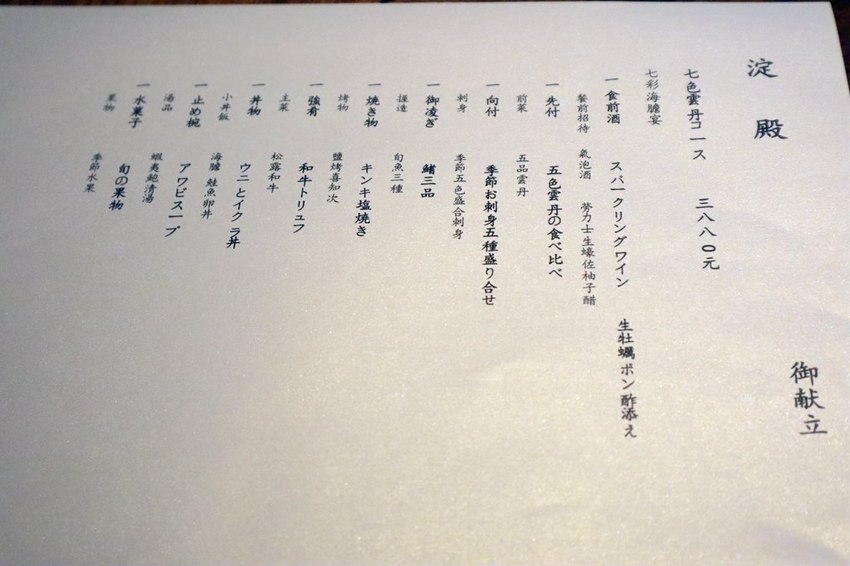 御献立
淀殿
七色雲丹コース 三八八〇元
七彩海膽宴
一 食前酒 スパークリングワイン 生牡蠣ポン酢添え
餐前招待 氣泡酒 勞力士生蠔佐柚子醋
一 先付 五色雲丹の食べ比べ
前菜 五品雲丹
一 向付 季節お刺身五種盛り合せ
刺身 季節五色盛合刺身
一 御凌ぎ 鮨三品
握造 旬魚三種
一 焼き物 キンキ塩焼き
烤物 鹽烤喜知次
一 強肴 和牛トリュフ
主菜 松露和牛
一 丼物 ウニとイクラ丼
小丼飯 海膽 鮭魚卵丼
一 止め椀 アワビスープ
湯品 蝦夷鮑清湯
一 水菓子 旬の果物
果物 季節水果